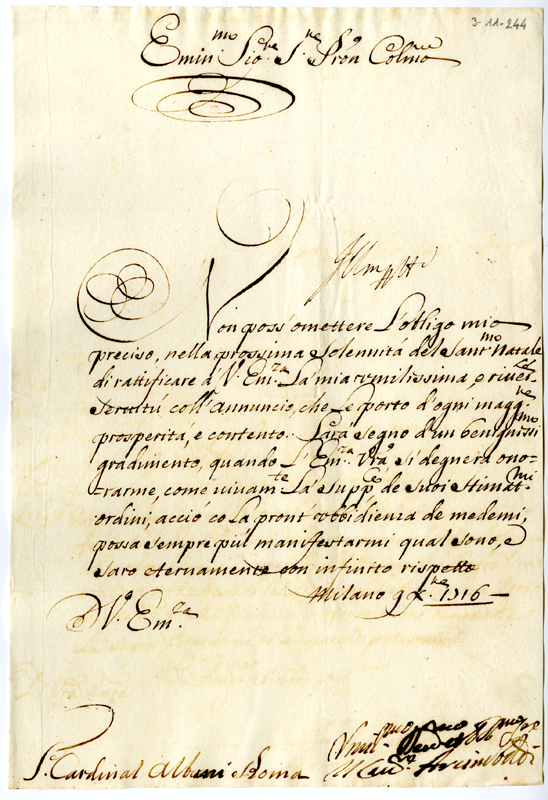 3-11-244
Emin.mo Sig.re S.re Pron Colmo
Non poss'omettere l'obligo mio
preciso, nella prossima solennitá del Sant.mo Natale
di rattificare á V. Em.za La mia umilissima, e river.
servitú coll'annuncio, che Le porto d'ogni magg.re
prosperitá, e contento. Sará segno d'un benigniss.mo
gradimento, quando L'Em.za Vrã si degnerá ono-
rarme, come vivam.te Lá supp.co de suoi stimat.mi
ordini, acció co La pront'ubbidienza de medemi,
possa sempre piú manifestarmi qual sono, e
saro eternamente con infinito rispetto
Milano 9 X.re 1716
D V. Em.za
S. Cardinal Albani Roma